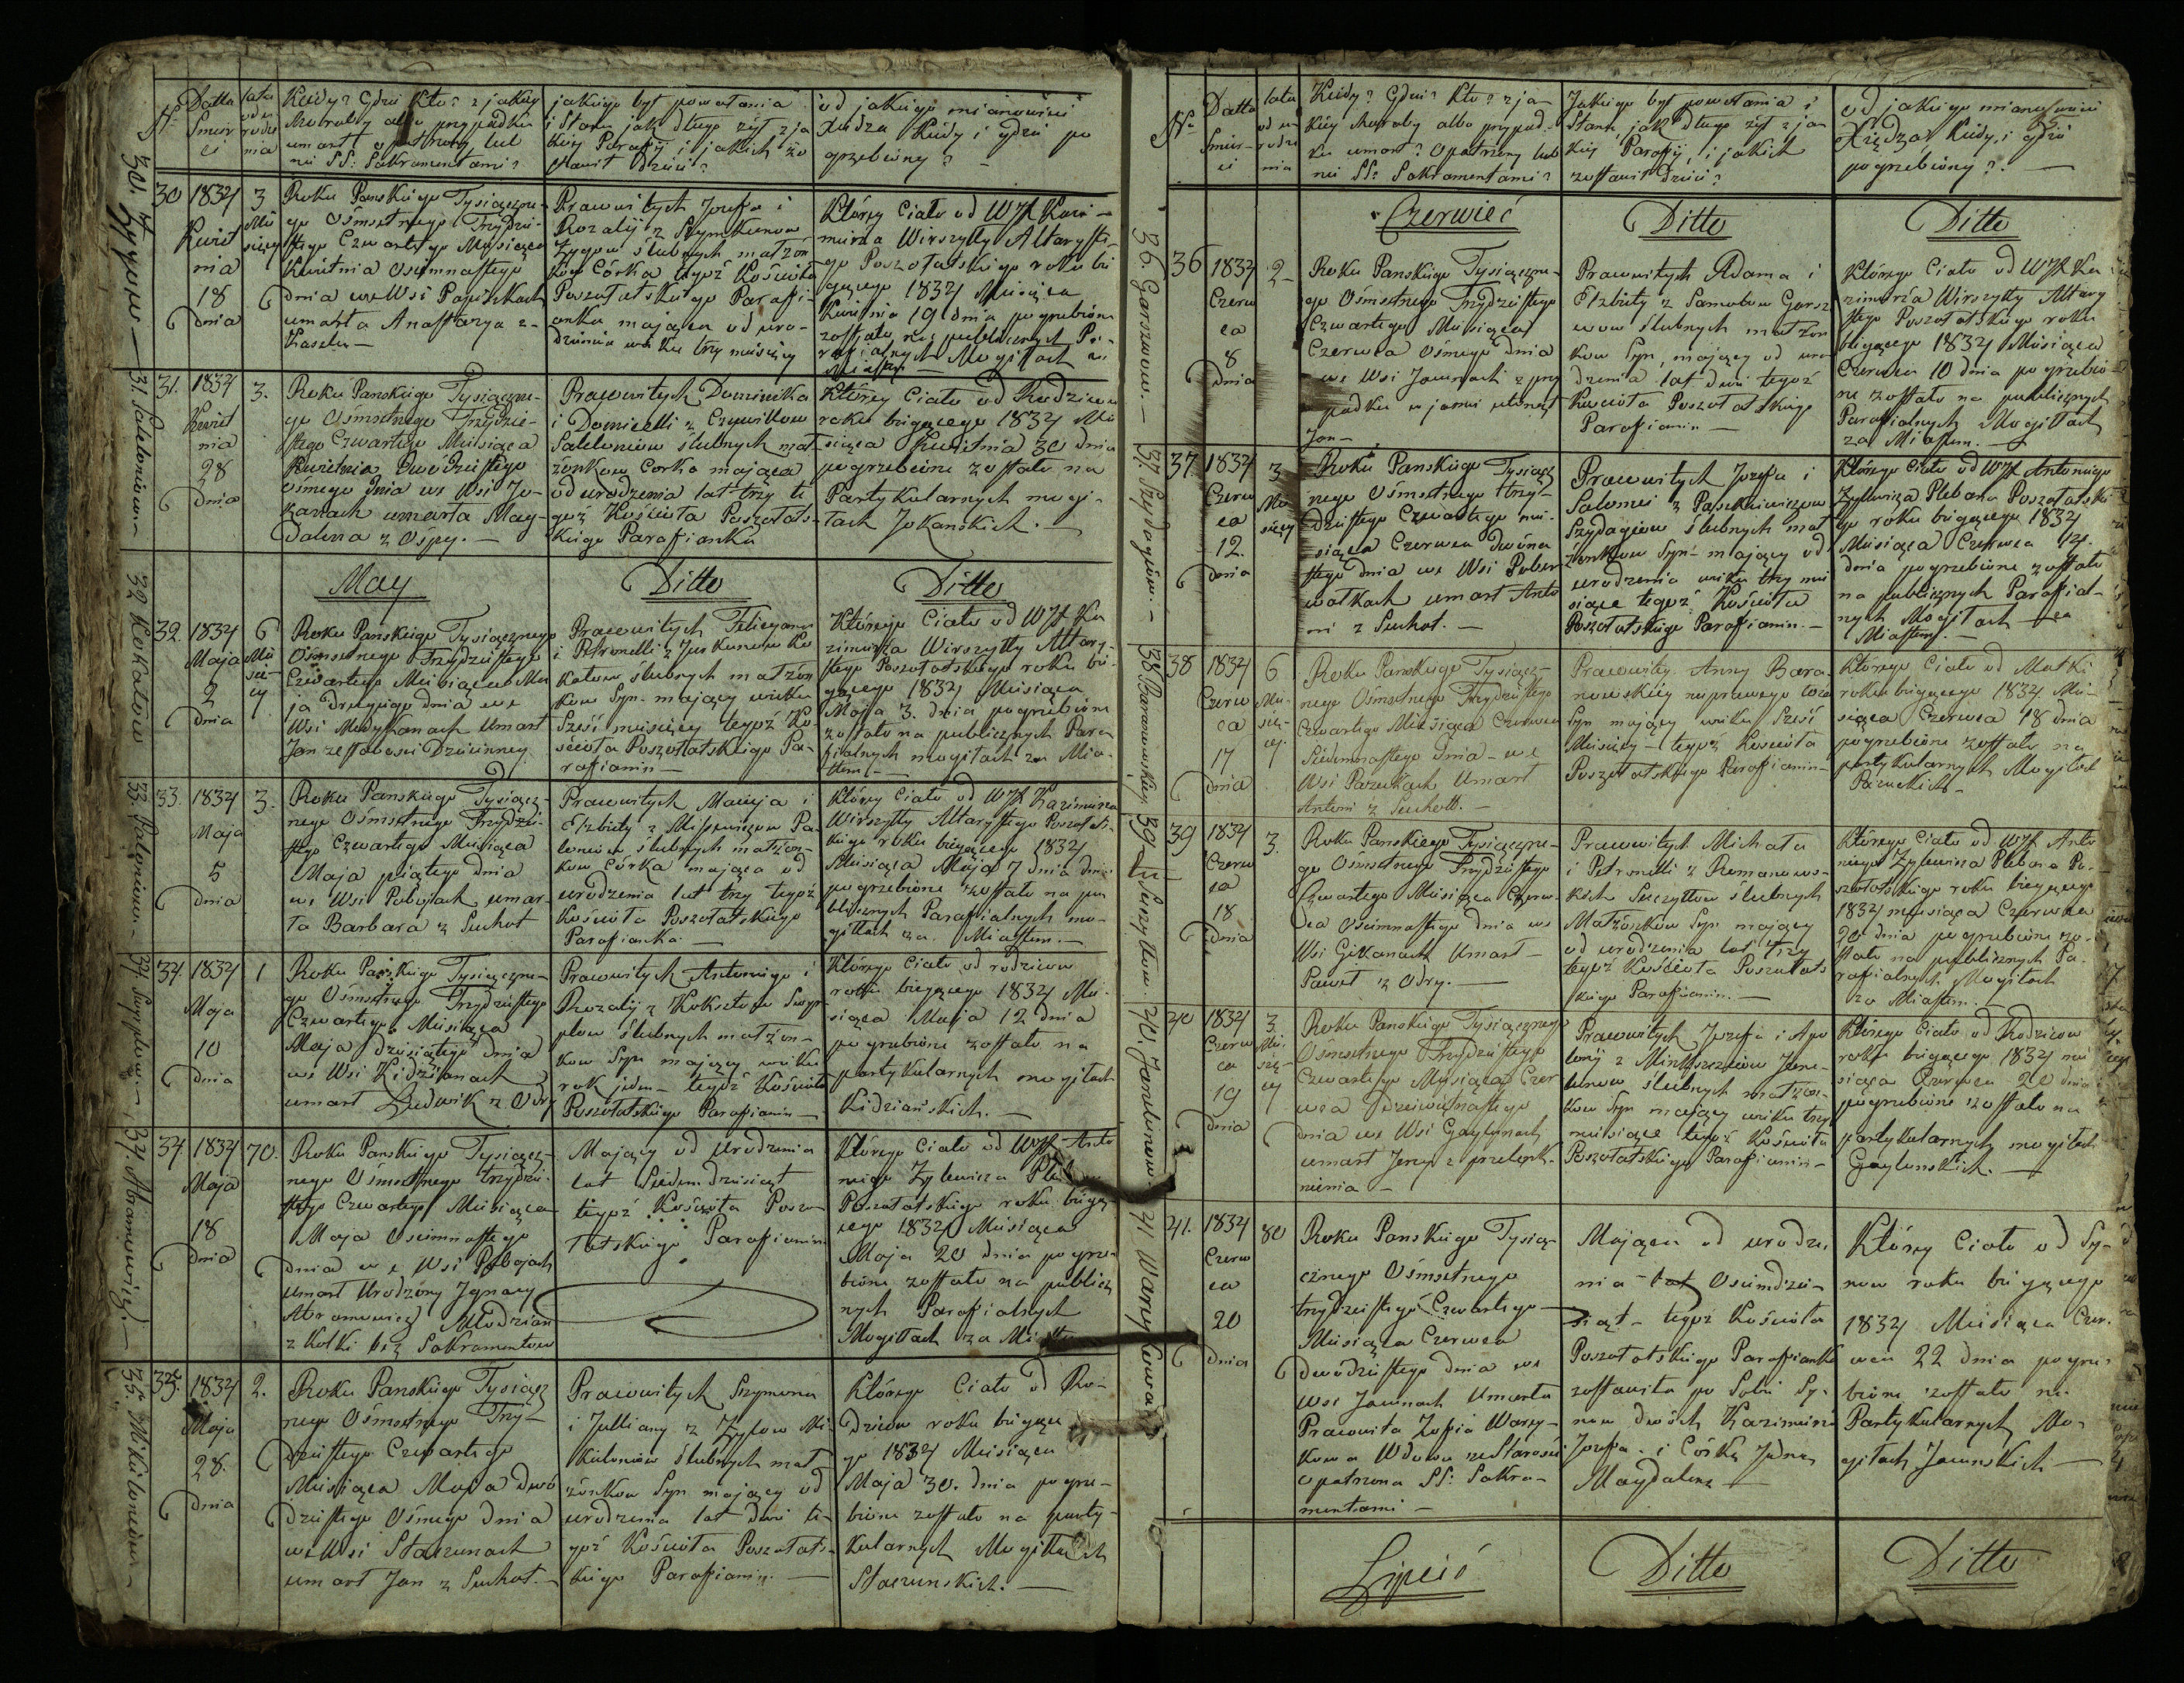 No
Datta Smierci
lata od urodzenia
Kiedy? Gdzie Kto? z jakiey
Choroby albo przypadku
umarł opatrzony lub
nie SS: Sakramentami?
jakiego był powołania
i Stanu jak długo żył z ja
kiey Parafij i jakich zo
stawił dzieci?
od jakiego mianowicie
Xiedza Kiedy i gdzie po
grzebiony?
30. Zygow
30
1834
Kwiet
nia
18
dnia
3
Mie
sięcy
Roku Panskiego Tysiączne-
go Ośmsetnego Trzydzie-
stego Czwartego Miesiąca
Kwietnia osiemnastego
dnia we Wsi Papiszkach
umarła Anastazya z
Kaszlu
Prawowitych Jozefa i
Rozalij z Szymkunow
Zygow ślubnych małżon
kow Córka tegoż Kościoła
Poszołatskiego Parafi-
anka mająca od uro-
dzenia wieku trzy miesięcy
Którey Ciało od WJX Kazi-
mierza Wirszyłły Altaryste-
go Poszołatskiego roku bie
gącego 1834 Miesiąca
Kwietnia 19 dnia pogrzebione
zostało na publicznych Pa-
rafialnych Mogiłach za
Miastem
31. Saleloniow
31.
1834
Kwiet
nia
28
dnia
3.
Roku Panskiego Tysiączne-
go Osmsetnego Trzydzie-
stego Czwartego Miesiąca
Kwietnia Dwudziestego
osmego dnia we Wsi Jo-
kanach umarła Mag-
dalena z Ospy.
Prawowitych Dominika
i Domicelli z Czywilow
Saleloniow ślubnych mał
żonkow Corka mająca
od urodzenia lat trzy te
goż Kościoła Poszołats-
kiego Parafianka
Którey Ciało od Rodzicow
roku biegącego 1834 Mie
siąca Kwietnia 30 dnia
pogrzebione zostało na
Partykularnych mogi-
łach Jokanskich.
May
Ditto
Ditto
32 Kokałow
32.
1834
Maja
2
dnia
6
Mie
się
cy
Roku Panskiego Tysiącznego
Ośmsetnego Trzydziestego
Czwartego Miesiąca Ma
ja Drugiego dnia we
Wsi Medykanach Umarł
Jan ze słabosci Dziecinney
Prawowitych Felicyana
i Petronelli z Jurkunow Ko
kałow ślubnych małżon
kow Syn mający wieku
Sześć miesięcy tegoż Ko-
scioła Poszołatskiego Pa-
rafianin
Którego Ciało od WJX Ka
zimierza Wirszyłły Altary-
stego Poszołatskiego roku bie-
gącego 1834 Miesiąca
Maja 3. dnia pogrzebione
zostało na publicznych Para
fialnych mogiłach za Mia-
stem
33. Paloniow
33.
1834
Maja
5
dnia
3.
Roku Panskiego Tysiącz-
nego Ośmsetnego Trzydzie-
stego Czwartego Miesiąca
Maja piątego dnia
we Wsi Pobojach umar-
ła Barbara z Suchot
Prawowitych Macieja i
Elzbiety z Misiewiczow Pa-
loniow ślubnych małżon-
kow Córka mająca od
urodzenia lat trzy tegoż
Kościoła Poszołatskiego
Parafianka
Którey Ciało od WJX Kazimierza
Wirszyłły Altarystego Poszołats-
kiego roku biegącego 1834
Miesiąca Maja 7 dnia
pogrzebione zostało na pu
blicznych Parafialnych mo-
giłach za Miastem.
34.
1834
Maja
10
dnia
1
Roku Panskiego Tysiączne-
go Ośmsetnego Trzydziestego
Czwartego Miesiąca
Maja dziesiątego dnia
we Wsi Kidzianach
umarł Ludwik z Odry
Prawowitych Antoniego i
Rozalij z Koksztow
plow ślubnych małżon-
kow Syn mający wieku
rok jeden tegoż Kościoła
Poszołatskiego Parafianin
Którego Ciało od rodzicow
roku biegącego 1834 Mie-
siąca Maja 12 dnia
pogrzebione zostało na
partykularnych mogiłach
Kidziańskich.
34. Abramowicz.
34.
1834
Maja
18
dnia
70.
Roku Panskiego Tysiącz-
nego Ośmsetnego trzydzie-
stego Czwartego Miesiąca
Maja Osiemnastego
dnia we Wsi Pobojach
umarł Urodzony Ignacy
Abramowicz Młodzian
z Kolki bez Sakramentow
Mający od Urodzenia
lat Siedemdziesiąt
tegoż Kościoła Poszo-
łatskiego Parafianin
Którego Ciało od WJX Anto
niego Zylewicza
Poszołatskiego roku biegą
cego 1834 Miesiąca
Maja 20 dnia pogrze-
bione zostało na publicz
nych Parafialnych
Mogiłach za
35. Mikieloniow
35.
1834
Maja
28.
dnia
2.
Roku Panskiego Tysiącz
nego Ośmsetnego Trzy-
dziestego Czwartego
Miesiąca Maja dwó
dziestego Ośmego dnia
we Wsi Staczunach
umarł Jan z Suchot.
Prawowitych Szymona
i Julliany z Zyłow Mi-
kieloniow ślubnych mał
żonkow Syn mający od
urodzenia lat dwie te-
goż Kościoła Poszołats-
kiego Parafianin.
Którego Ciało od Ro-
dzicow roku biegące
go 1834 Miesiąca
Maja 30. dnia pogrze-
bione zostało na party-
kularnych Mogiłach
Staczunskich.
No
Datta Smierci
lata od urodzenia
Kiedy? Gdzie? Kto? z ja-
kiey choroby albo przypad-
ku umarł? opatrzony lub
nie SS: Sakramentami?
Jakiego był powołania i
Stanu jak długo żył z ja-
kiey Parafij, i jakich
zostawił dzieci?
od jakiego mianowicie
Xiędza, Kiedy, i gdzie
pogrzebiony?
Czerwieć
Ditto
Ditto
36. Garszwow.
36
1834
Czerw
ca
8
dnia
2
Roku Panskiego Tysiączne-
go Ośmsetnego Trzydziestego
Czwartego Miesiąca
Czerwca Ośmego dnia
we Wsi Jawnach z przy
padku w jamie utonął
Jan
Prawowitych Adama i
Elzbiety z Samulow Garsz
wow ślubnych małżon
kow Syn mający od uro
dzenia lat dwie tegoż
Kościoła Poszołatskiego
Parafianin
Którego Ciało od WJX Ka
zimierza Wirszyłły Altary
stego Poszołatskiego roku
biegącego 1834 Miesiąca
Czerwca 10 dnia pogrzebio-
ne zostało na publicznych
Parafialnych Mogiłach
za Miastem.
37. Szydagiow
37
1834
Czerw
ca
12.
dnia
3
Mie
sięcy
Roku Panskiego Tysiącz
nego Ośmsetnego trzy-
dziestego Czwartego mie-
siąca Czerwca Dwóna
stego dnia we Wsi
wałkach umarł Anto
ni z Suchot.
Prawowitych Jozefa i
Salomei z Paszkiewiczow
Szydagiow ślubnych mał
żonkow Syn mający od
urodzenia wieku trzy mie
siące tegoż Kościoła
Poszołatskiego Parafianin.
Którego Ciało od WJX Antoniego
Zylewicza Plebana Poszołatskie
go roku biegącego 1834
Miesiąca Czerwca 14.
dnia pogrzebione zostało
na publicznych Parafial-
nych Mogiłach za
Miastem.
38 Baranowskiey
38
1834
Czerw
ca
17
dnia
6
Mie-
się-
cy.
Roku Panskiego Tysiącz-
nego Ośmsetnego Trzydziestego
Czwartego Miesiąca Czerwca
Siedmnastego dnia we
Wsi Pazukach Umarł
Antoni z Suchott.
Prawowitey Anny Bara-
nowskiey nieprawego łoza
Syn mający wieku Sześć
Miesięcy tegoż Kościoła
Poszołatskiego Parafianin
Którego Ciało od Matki
roku biegącego 1834 Mie-
siąca Czerwca 18 dnia
pogrzebione zostało na
partykularnych Mogiłach
Pazuckich
39
1834
Czerw
ca
18
dnia
3.
Roku Panskiego Tysiączne-
go Osmsetnego Trzydziestego
Czwartego Miesiąca Czerw-
ca Osiemnastego dnia we
Wsi Gikanach Umarł
Paweł z Odry.
Prawowitych Michała
i Petronelli z Romanows-
kich Suczyłłow ślubnych
Małżonkow Syn mający
od urodzenia lat trzy
tegoż Kościoła Poszołats
kiego Parafianin.
Którego Ciało od WJX Anto
niego Zylewicza Plebana Po-
szołatskiego roku biegącego
1834 miesiąca Czerwca
20 dnia pogrzebione zo-
stało na publicznych Pa-
rafialnych Mogiłach
za Miastem.
40. Janelunow
40
1834
Czerw
ca
19
dnia
3.
Mie-
się-
cy
Roku Panskiego Tysiącznego
Ośmsetnego Trzydziestego
Czwartego Miesiąca Czer
wca Dziewiętnastego
dnia we Wsi Gaylunach
umarł Jerzy z przelęk-
nienia
Prawowitych Jozefa i Apo
lonij z
ślubnych małżon-
kow Syn mający wieku trzy
miesiące tegoż Kościoła
Poszołatskiego Parafianin
Którego Ciało od Rodzicow
roku biegącego 1834 mie
siąca Czerwca 20 dnia
pogrzebione zostało na
partykularnych mogiłach
Gaylunskich.
41 Warnykowa
41.
1834
Czerw
ca
20
dnia
80
Roku Panskiego Tysią-
cznego Ośmsetnego
trzydziestego Czwartego
Miesiąca Czerwca
dwódziestego dnia we
Wsi Jawnach Umarła
Prawowita Zofia Warny-
kowa Wdowa ze Starosci
opatrzona SS: Sakra-
mentami
Mająca od urodze-
nia lat Osiemdzie-
siąt tegoż Kościoła
Poszołatskiego Parafianka
zostawiła po Sobie Sy-
now dwóch Kazimierza
Jozefa i Córkę Jedne
Magdalenę
Którey Ciało od Sy-
now roku biegącego
1834 Miesiąca Czer-
wca 22 dnia pogrze-
bione zostało na
Partykularnych Mo-
giłach Jawnskich
Lipieć
Ditto
Ditto